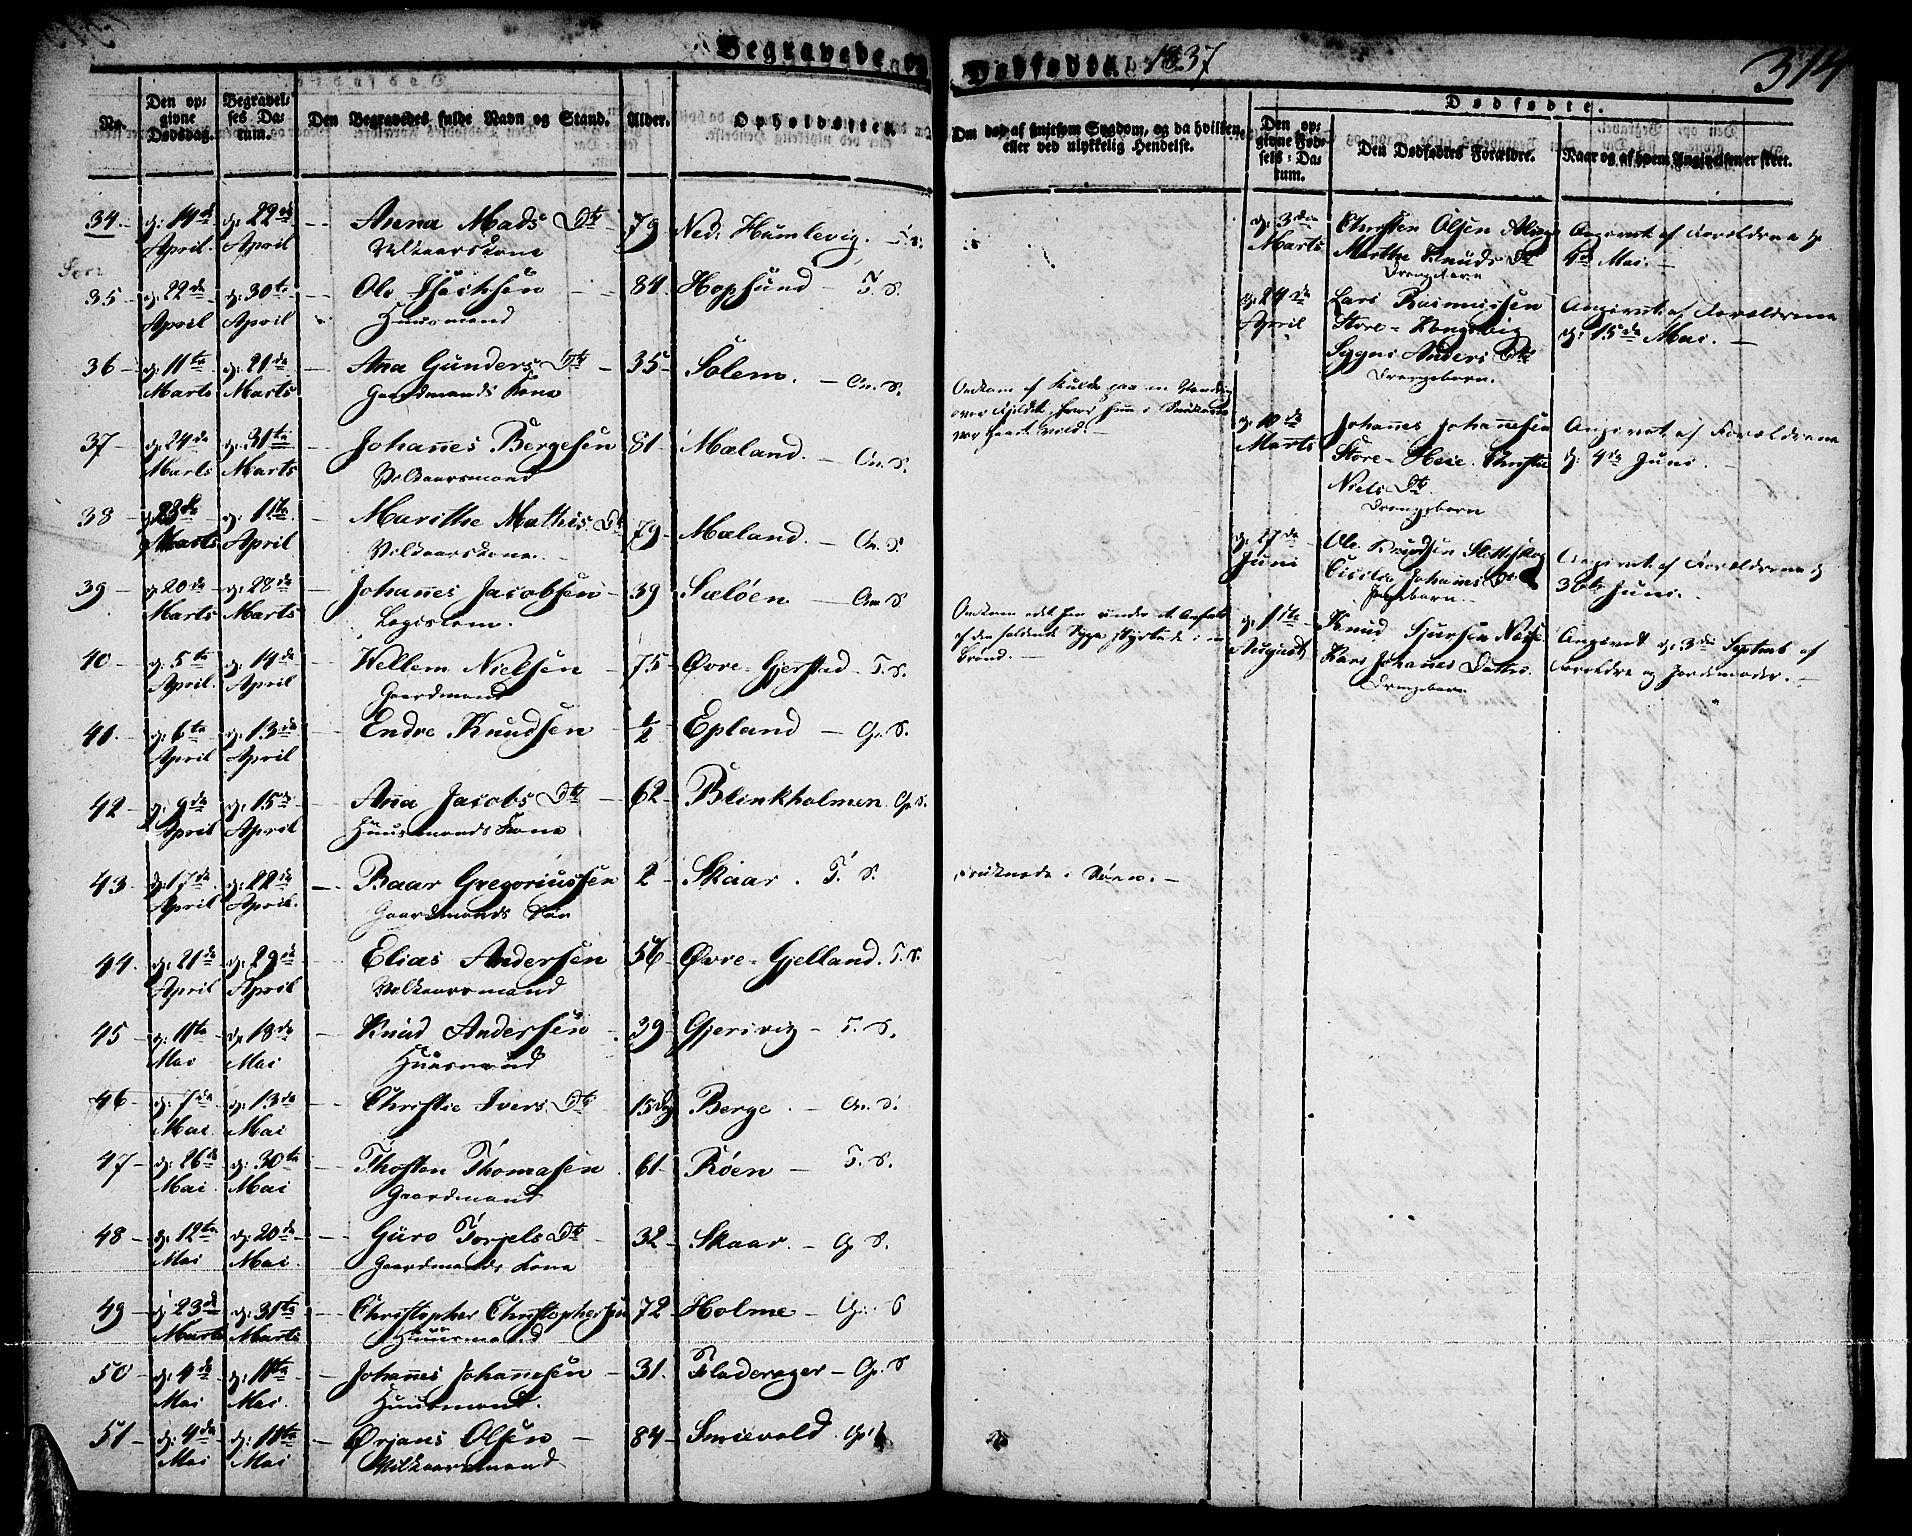 Begravede og Dødfødte 1837
314
No.
Den opgivne Dødsdag.
Begravelses Datum.
Den Begravedes fulde Navn og Stand.
Alder.
Opholdssted.
Om død af smitsom Sygdom, og da hvilken, eller ved ulykkelig Hendelse.
Dødfødte.
Den opgivne Fødsels-Datum.
Den Dødfødtes Forældre.
Naar og af hvem Angivelsen er skeet.
34. d: 14de April d: 22de April — Anna Mads Dtr 79 Ned: Humlevig. F. S.
Vilkaarskone
35 d: 22de April d: 30te April — Ole Isachsen 84 Hopsund — F. S.
Huusmand
36 — d: 11te Marts d: 21de Marts — Ana Gunders Dtr — 35 Solem. — On. S.
Gaardmands Kone
37 — d: 24de Marts d: 31te Marts — Johannes Bergesen 81 Mæland. — On. S.
Vilkaarsmand
38 — d: 23de Marts d: 1te April — Marithe Mathis Dtr 79 Mæland. — On. S.
Vilkaarskone.
39 — d: 20de Marts d: 28de Marts — Johannes Jacobsen 39 Sæløen — On. S.
Logislem.
40 — d: 5te April. d: 14de April — Wellem Nielsen 75 Øvre-Gjerstad — F. S.
Gaardmand
41. — d: 6te April d: 13de April — Endre Knudsen ½ Epland — On. S.
42 — d: 9de April d: 15de April — Ana Jacobs Dtr — 62 Blinkholmen. On. S.
Huusmands Kone
43 d: 17de April d: 22de April. — Baar Gregoriussen 2 Skaar. F. S. druknede i Søen. —
Gaardmands Søn
44. d: 21de April d: 29de April — Elias Andersen 56 Øvre-Gjelland. F. S.
Vilkaarsmand
45 d: 11te Mai d: 18de Mai — Knud Andersen 39 Gjersvig — F. S.
Huusmand
46 — d: 7de Mai d: 13de Mai — Christie Ivers Dtr 15 Dg Berge. — On. S.
47 — d: 26de Mai. d: 30te Mai — Thosten Thomasen 61 Røen — F. S.
Gaardmand
48 — d: 12te Mai d: 20de Mai. — Guro Torjels Dtr 32 Skaar. — On. S.
Gaardmands Kone
49 d: 23de Marts d: 31te Marts — Christopher Christophersen 72 Holme — On. S
Huusmand
50 — d: 4de Mai d: 11te Mai. — Johannes Johannesen — 31. Fladerager — On. S
Huusmand.
51 — d: 4de Mai d: 11te Mai — Ørjans Olsen — 84 Smievold. On.
Vilkaarsmand
Omkom af Kulde paa en Vandring
over Fjeldet, hvor hun i
var gaaet vild. —
Omkom ved han under et Anfald
af den faldende Syge styrtede i en
Brønd. —
d: 3die Marts Christen Olsen Angivet af Forældrene d:
Marthe Knuds Dtr 4de Mai. —
Drengebarn
d: 24de April Lars Rasmussen Angivet af Forældrene
Store-Kongsvig d: 15de Mai. —
Sygni Anders Dtr
Drengebarn.
d: 10de Marts Johannes Johannesen Angivet af Forældrene
Store-Heie. Christie d: 4de Juni. —
Niels Dtr.
Drengebarn
d: 27de Juni Ole Knudsen Angivet af Forældrene d:
Cicilie Johannes Dtr 30te Juni. —
Pigebarn. —
d: 11te August Knud Sjursen Næse Angivet d: 3die Septemb af
Kari Johannes Datter. Forældre og Jordemoder. —
Drengebarn